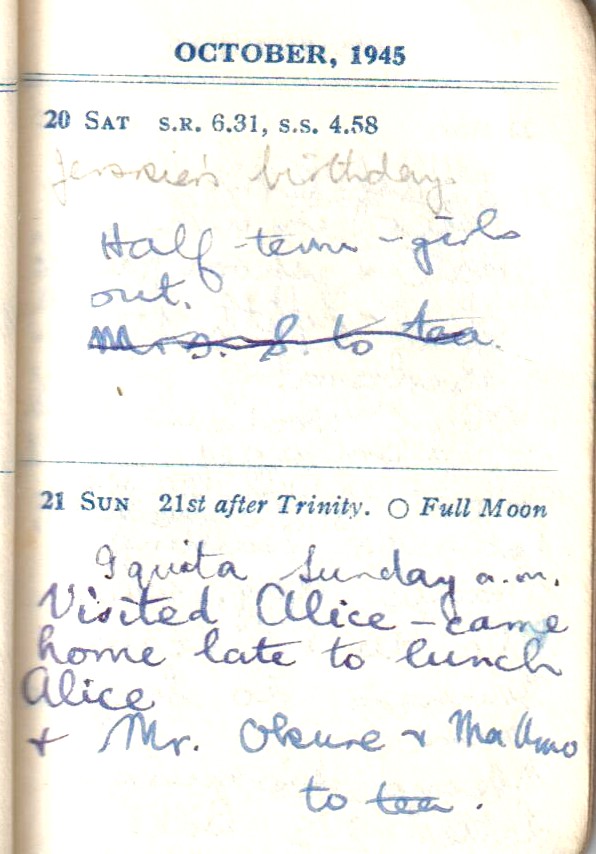 OCTOBER, 1945
20 SAT S.R. 6.31, S.S. 4.58
Jessie's birthday.
Half-term - girls
out.
Mrs. S. to tea.
21 SUN 21st after Trinity. ○ Full Moon
Iquita Sunday a.m.
Visited Alice - came
home late to lunch
Alice
+ Mr. Okure + Ma Umo
to tea.